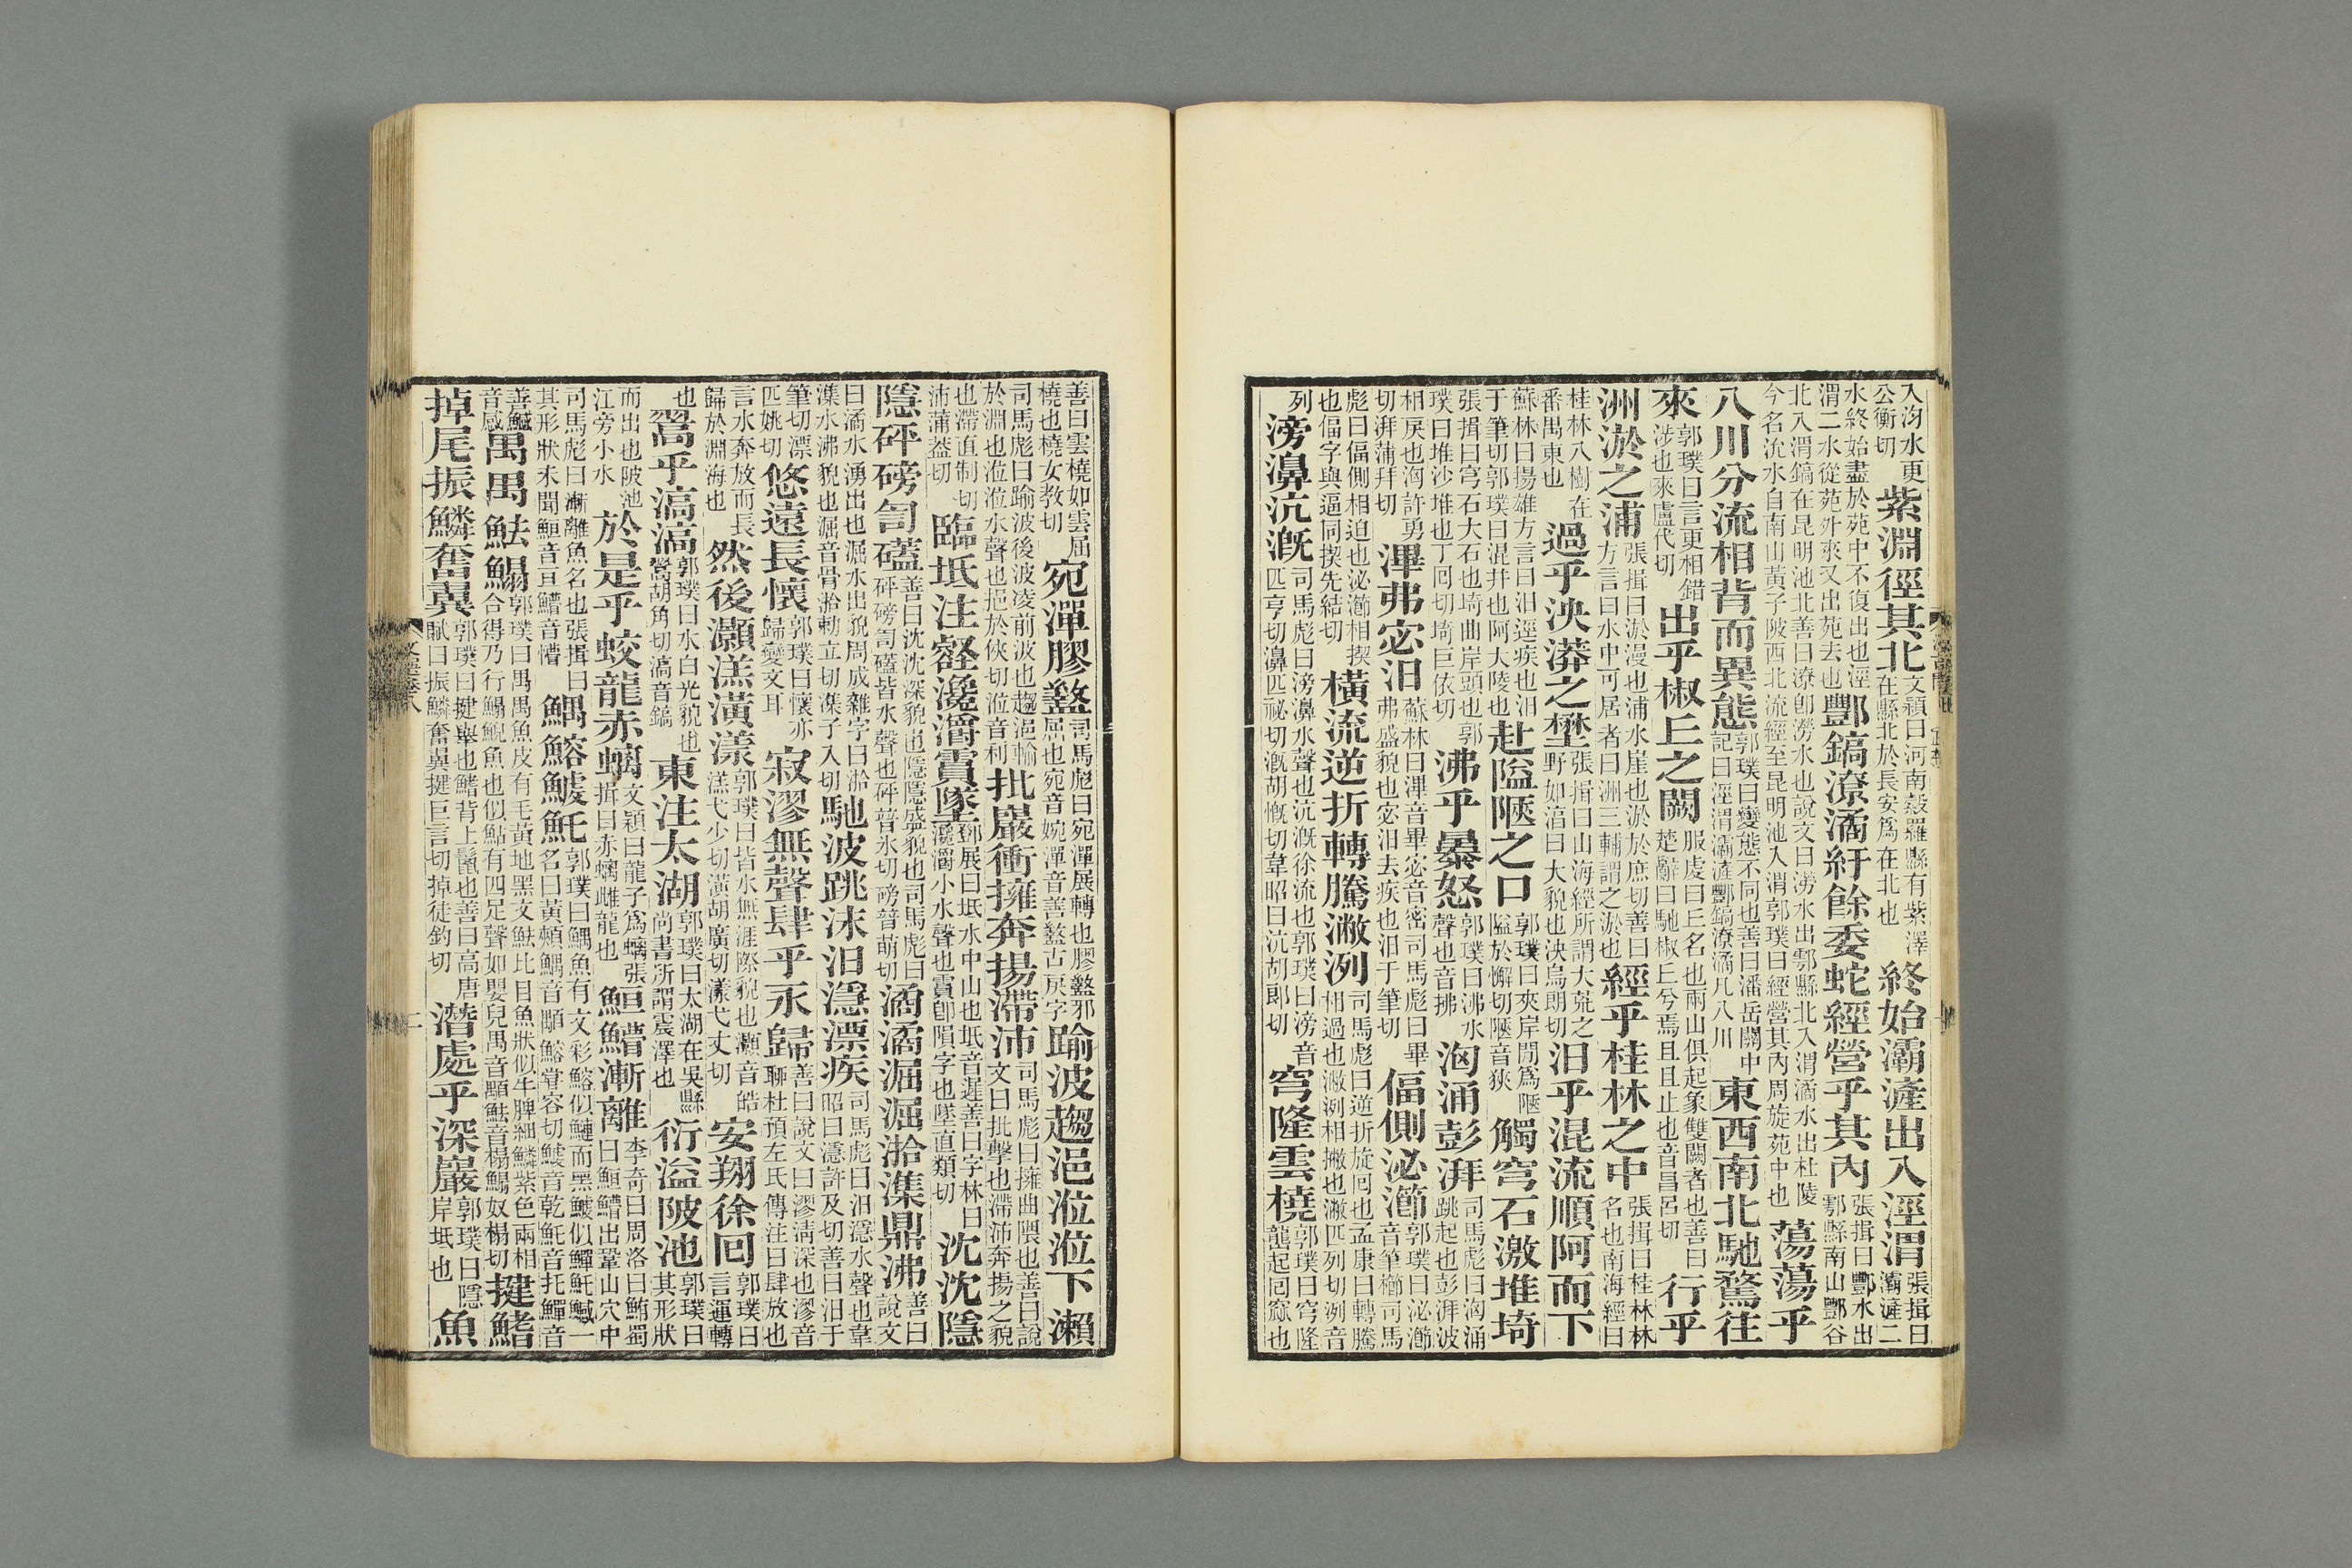 入沟水更公衡切紫淵徑其北文穎曰河南穀羅縣有紫澤在縣北於長安爲在北也終始灞滻出入涇渭張揖曰灞滻二
水終始盡於苑中不復出也涇渭二水從苑外來又出苑去也酆鎬潦潏紆餘委蛇經營乎其內張揖曰酆水出鄠縣南山酆谷
北入渭鎬在昆明池北善曰潦卽澇水也說文曰澇水出鄠縣北入渭潏水出杜陵今名沇水自南山黃子陂西北流經至昆明池入渭郭璞曰經營其內周旋苑中也蕩蕩乎
八川分流相背而異態郭璞曰變態不同也善曰潘岳關中記曰涇渭灞滻酆鎬潦潏凡八川東西南北馳騖往
來郭璞曰言更相錯涉也來盧代切出乎椒丘之闕服虔曰丘名也兩山俱起象雙闕者也善曰楚辭曰馳椒丘兮焉且且止也音昌呂切行乎
洲淤之浦張揖曰淤漫也浦水崖也淤於庶切善曰方言曰水中可居者曰洲三輔謂之淤也經乎桂林之中張揖曰桂林林名也南海經曰
桂林八樹在番禺東也過乎泱漭之壄張揖曰山海經所謂大荒之野如淳曰大貌也泱烏朗切汩乎混流順阿而下
蘇林曰揚雄方言曰汩逕疾也汩于筆切郭璞曰混井也阿大陵也赴隘陿之口郭璞曰夾岸閒爲陿隘於懈切陿音狹觸穹石激堆埼
張揖曰穹石大石也埼曲岸頭也郭璞曰堆沙堆也丁回切埼巨依切沸乎暴怒郭璞曰沸水聲也音拂洶涌彭湃司馬彪曰洶涌跳起也彭湃波
相戾也洶許勇切湃蒲拜切滭弗宓汩蘇林曰滭音畢宓音密司馬彪曰畢弗盛貌也宓汩去疾也汩于筆切偪側泌瀄郭璞曰泌瀄音筆櫛司馬
彪曰偪側相迫也泌瀄相揳也偪字與逼同揳先結切橫流逆折轉騰潎洌司馬彪曰逆折旋回也孟康曰轉騰相過也潎洌相撇也潎匹列切洌音
列滂濞沆溉司馬彪曰滂濞水聲也沆溉徐流也郭璞曰滂音匹亨切濞匹祕切溉胡慨切韋昭曰沆胡郎切穹隆雲橈郭璞曰穹隆龍起回窳也
善曰雲橈如雲屈橈也橈女教切宛潬膠盭司馬彪曰宛潬展轉也膠盭邪屈也宛音婉潬音善盭古戾字踰波趨浥涖涖下瀨
司馬彪曰踰波後波凌前波也趨浥輸於淵也涖涖水聲也浥於俠切涖音利批巖衝擁奔揚滯沛司馬彪曰擁曲隈也善曰說文曰批擊也滯沛奔揚之貌
也滯直制切沛蒲蓋切臨坻注壑瀺灂霣墜鄧展曰坻水中山也坻音遲善曰字林曰瀺灂小水聲也霣卽隕字也墜直類切沈沈隱
隱砰磅訇磕善曰沈沈深貌也隱隱盛貌也司馬彪曰砰磅訇磕皆水聲也砰普氷切磅普萌切潏潏淈淈湁潗鼎沸善曰說文
曰潏水湧出也淈水出貌周成雜字曰湁潗水沸貌也淈音骨湁勅立切潗子入切馳波跳沫汩㵫漂疾司馬彪曰汩㵫水聲也韋昭曰㵫許及切善曰汩于
筆切漂匹姚切悠遠長懷郭璞曰懷亦歸變文耳寂漻無聲肆乎永歸善曰說文曰漻淸深也漻音聊杜預左氏傳注曰肆放也
言水奔放而長歸於淵海也然後灝溔潢漾郭璞曰皆水無涯際貌也灝音皓溔弋少切潢胡廣切漾弋丈切安翔徐回郭璞曰言運轉
也翯乎滈滈郭璞曰水白光貌也翯胡角切滈音鎬東注太湖郭璞曰太湖在吳縣尚書所謂震澤也衍溢陂池郭璞曰其形狀
而出也陂池江旁小水於是乎蛟龍赤螭文穎曰龍子爲螭張揖曰赤螭雌龍也䱭䲛漸離李奇曰周洛曰鮪蜀曰䱭䲛出鞏山穴中
司馬彪曰漸離魚名也張揖曰其形狀未聞䱭音亘䲛音懵鰅鰫鰬魠郭璞曰鰅魚有文彩鰫似鰱而黑鰬似鱓魠鰔一名曰黃頰鰅音顒鰫嘗容切鰬音乾魠音托鱓音
善鰔音感禺禺魼鰨郭璞曰禺禺魚皮有毛黃地黑文魼比目魚狀似牛脾細鱗紫色兩相合得乃行鰨鯢魚也似鮎有四足聲如嬰兒禺音顒魼音榻鰨奴榻切揵鰭
掉尾振鱗奮翼郭璞曰揵舉也鰭背上鬣也善曰高唐賦曰振鱗奮翼揵巨言切掉徒釣切潛處乎深巖郭璞曰隱岸坻也魚